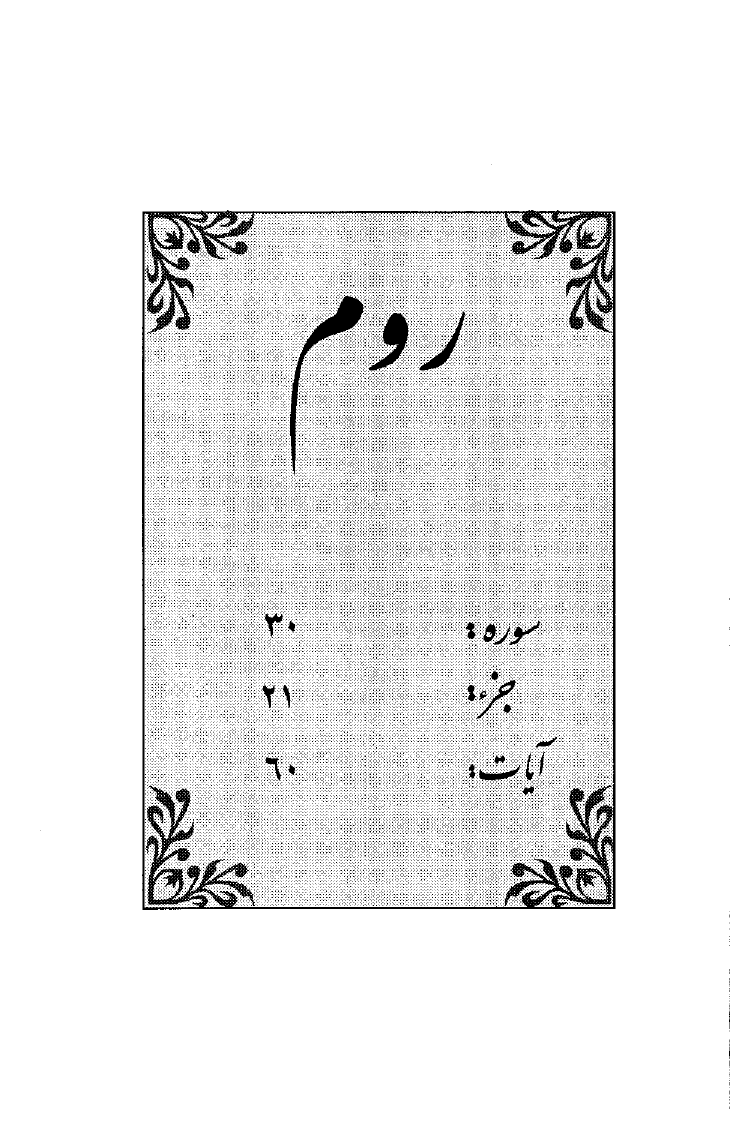 روم
سوره: ۳۰
جزء: ۲۱
آیات: ٦۰